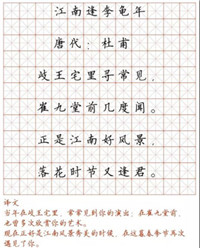 江南逢李龟年
唐代：杜甫
岐王宅里寻常见，
崔九堂前几度闻。
正是江南好风景，
落花时节又逢君。
译文
当年在岐王宅里，常常见到你的演出；在崔九堂前，
也曾多次欣赏你的艺术。
现在正好是江南风景秀美的时候，在这暮春季节再次
遇见了你。